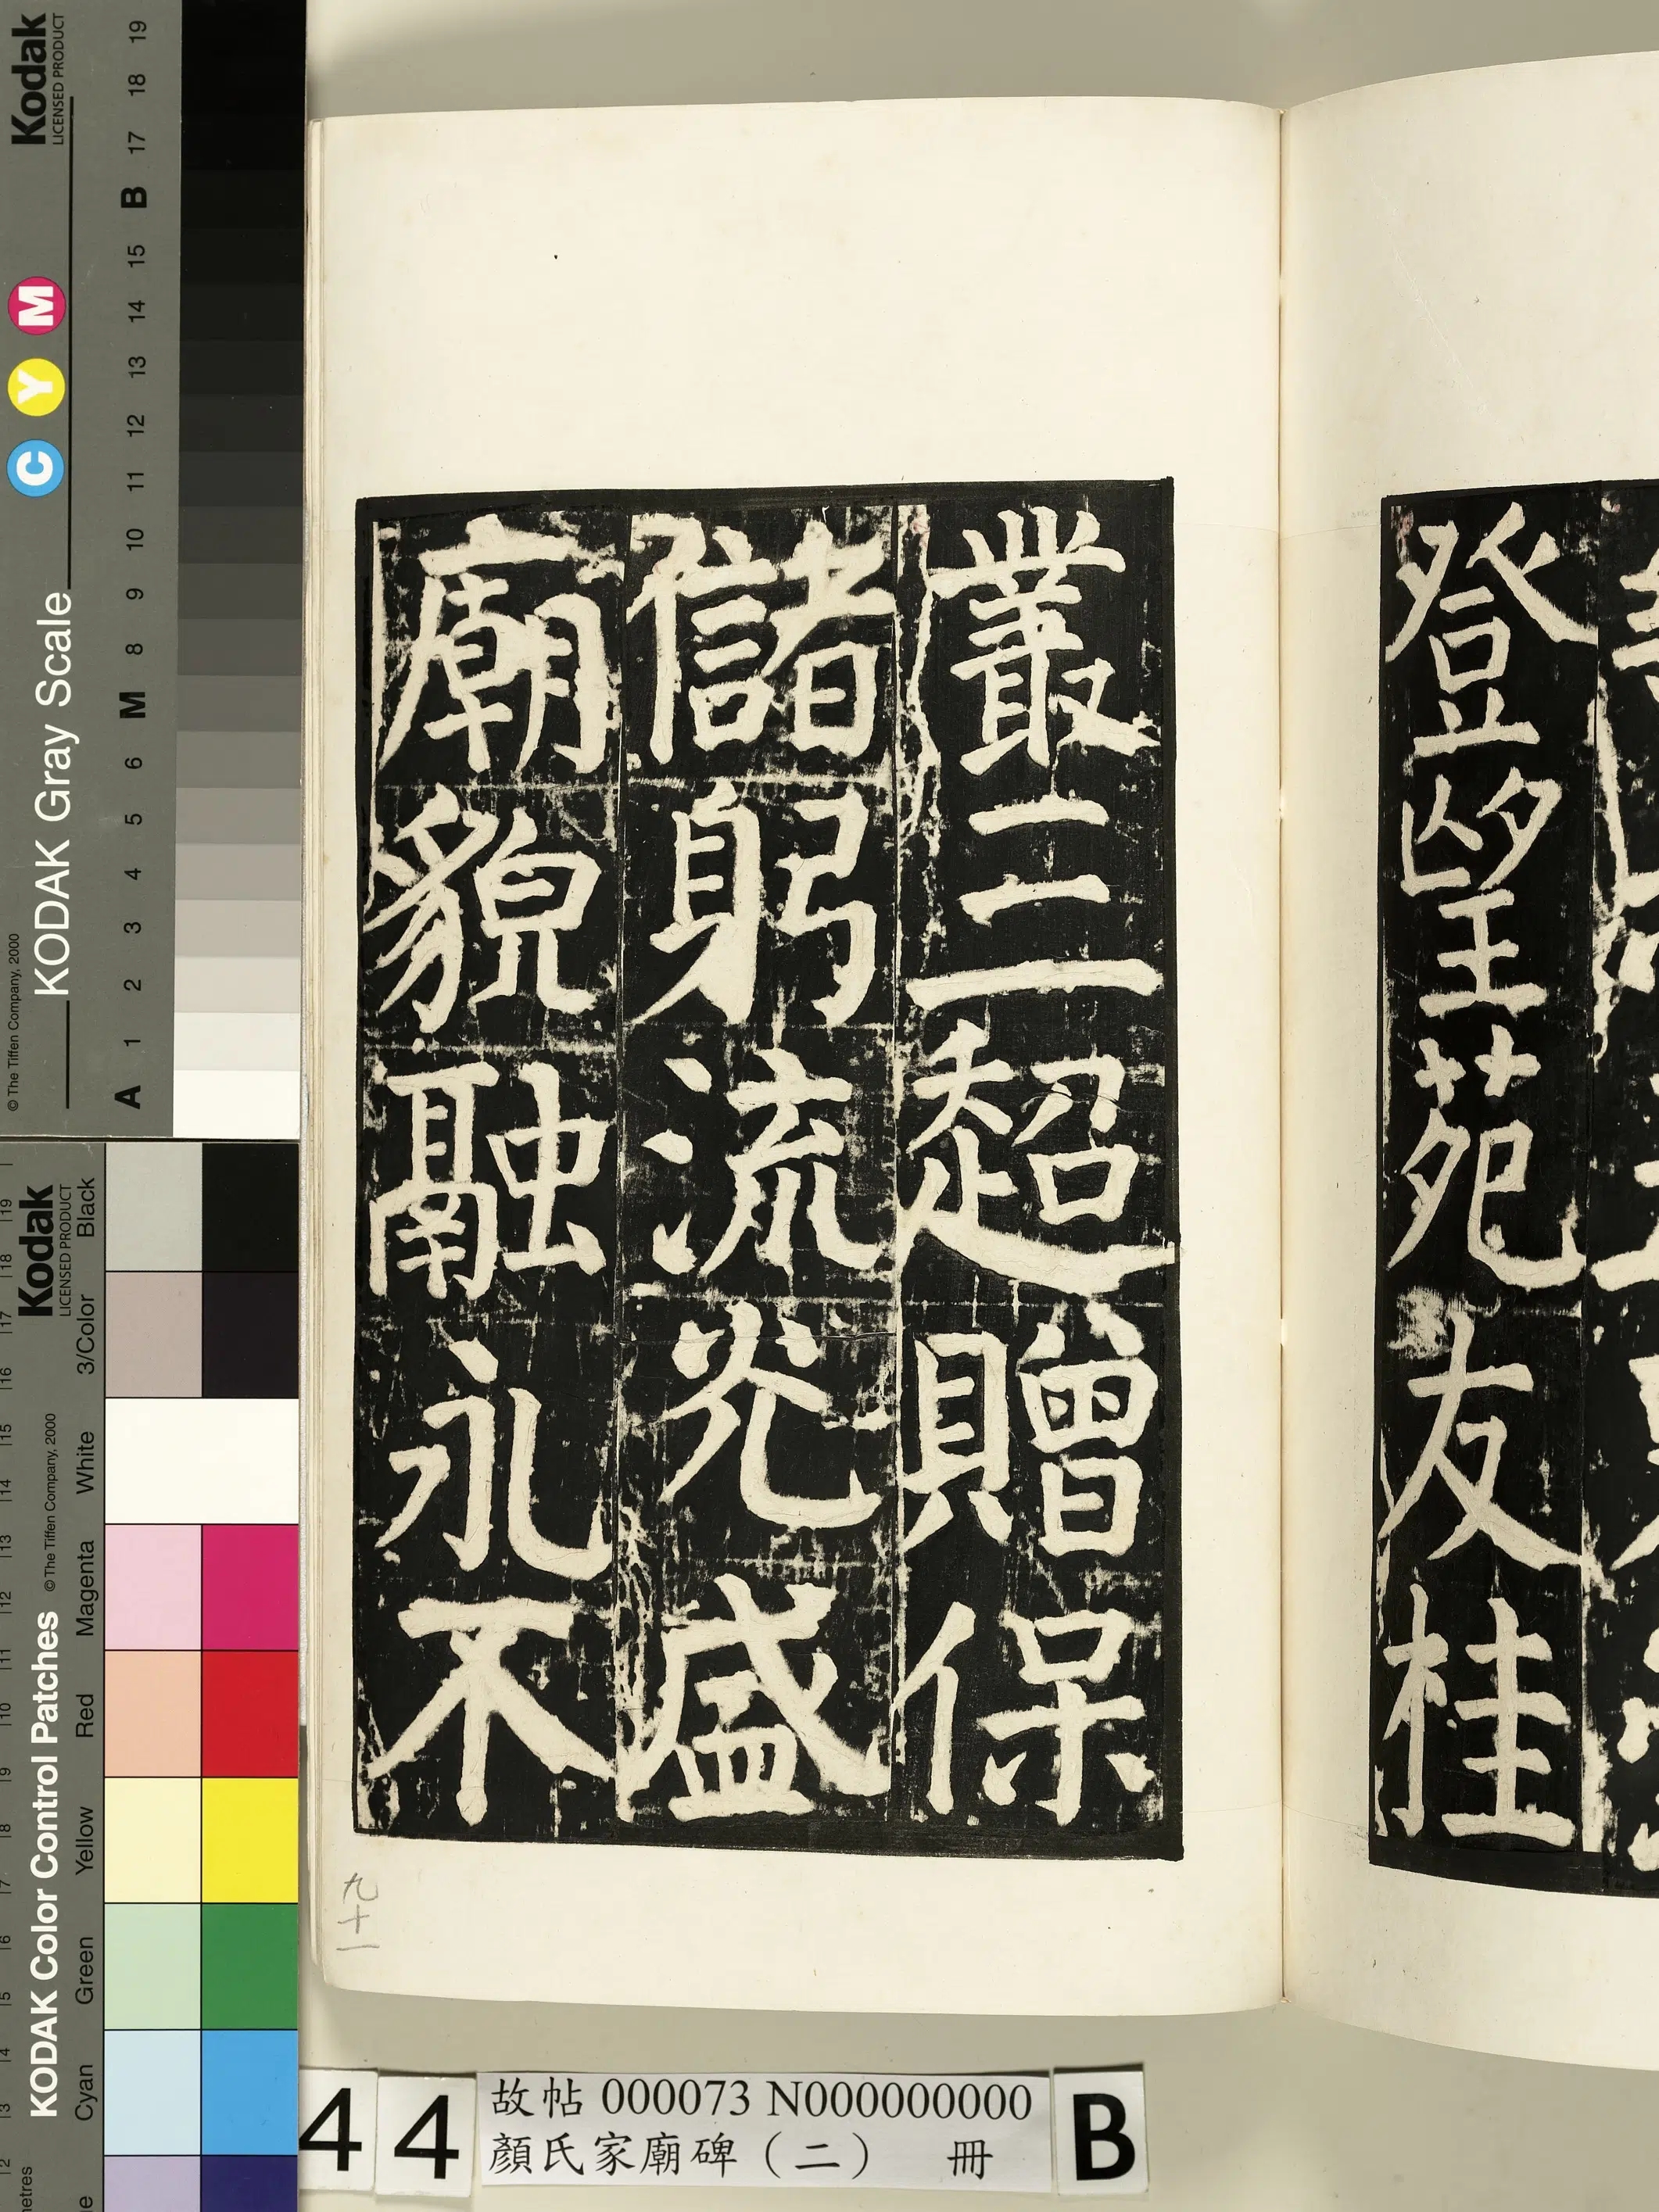 登望苑友桂
叢三超贈保
儲躬流光盛
廟貌融永不
九十一
4 4 故帖 000073 N000000000 B
顏氏家廟碑（二） 冊
Kodak
LICENSED PRODUCT
KODAK Gray Scale
C Y M
© The Tiffen Company, 2000
A 1 2 3 4 5 6 M 8 9 10 11 12 13 14 15 B 17 18 19
Kodak
LICENSED PRODUCT
KODAK Color Control Patches
© The Tiffen Company, 2000
Cyan Green Yellow Red Magenta White 3/Color Black